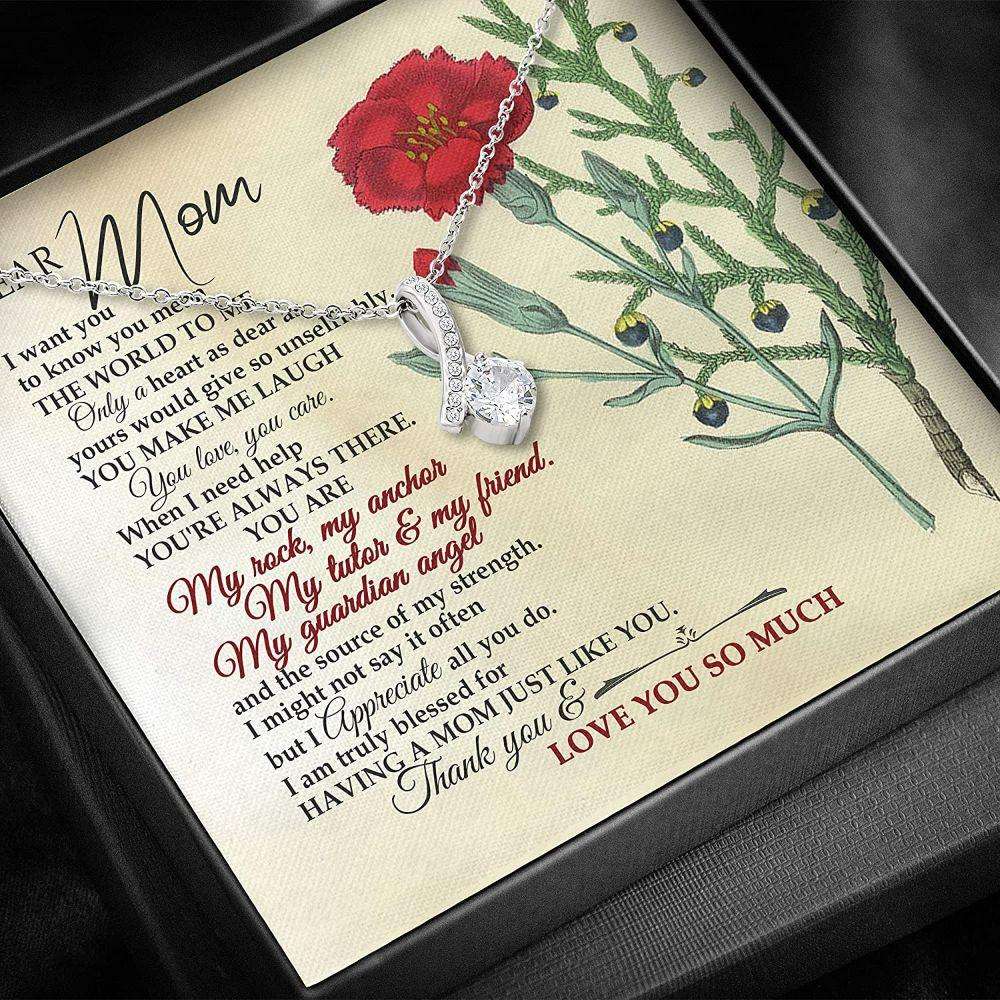 EAR Mom
I want you
to know you me
THE WORLD TO ME
Only a heart as dear as
yours would give so unselfishly.
YOU MAKE ME LAUGH
You love, you care.
When I need help
YOU'RE ALWAYS THERE.
YOU ARE
My rock, my anchor
My tutor & my friend.
My guardian angel
and the source of my strength.
I might not say it often
but I Appreciate all you do.
I am truly blessed for
HAVING A MOM JUST LIKE YOU.
Thank you &
LOVE YOU SO MUCH